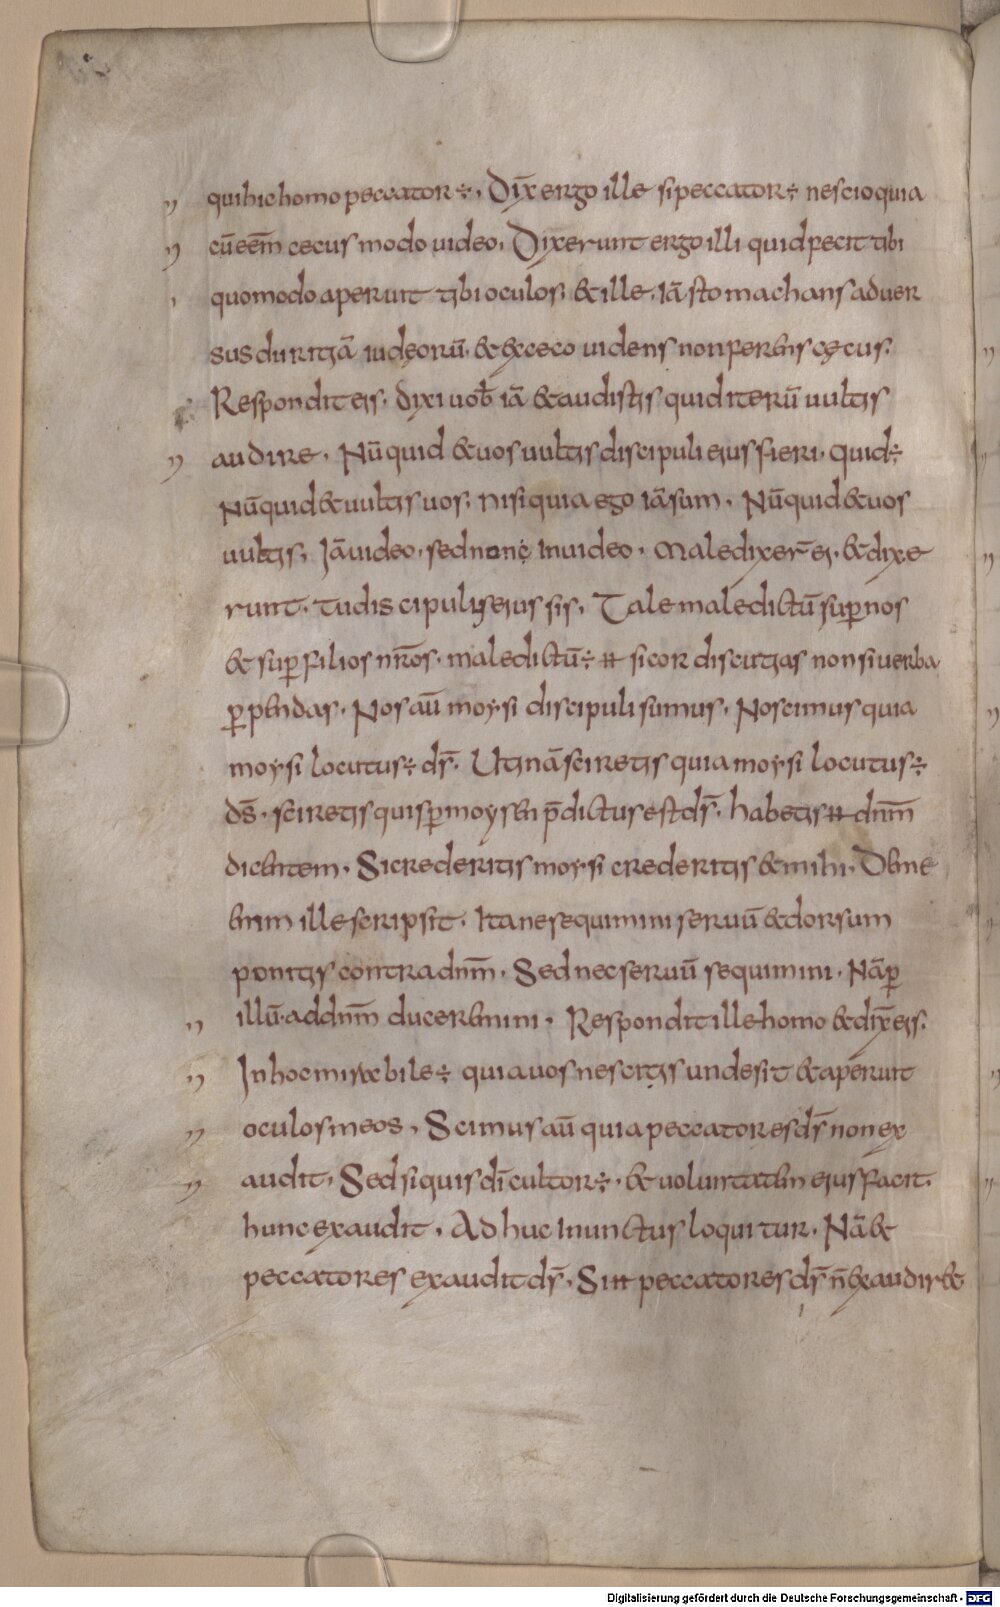 qui hic homo peccator ÷. Dix̄ ergo ille si peccator ÷ nescio quia
cū eēm cecus modo uideo. Dixerunt ergo illi quid fecit tibi
quomodo aperuit tibi oculos. & ille. iā stomachans aduer
sus duritiā iudęorū. & ex ceco uidens non ferens cęcus.
Respondit eis. dixi uob̄ iā & audistis quid iterū uultis
audire. Nūquid & uos uultis discipuli eius fieri. quid ÷
Nūquid & uultis uos. nisi quia ego iā sum. Nūquid & uos
uultis. Iā uideo. sed non inuideo. Maledixer̄ ei. & dixe
runt. tu discipulus eius sis. Tale maledictū sup nos
& sup filios nr̄os. maledictū ÷ H si cor discutias non si uerba
ppendas. Nos aū moysi discipuli sumus. Nos scimus quia
moysi locutus ÷ ds̄. Utinā sciretis quia moysi locutus ÷
ds̄. sciretis quis p moysen p̄dictus est ds̄. habetis H dnm̄
dicentem. Si crederitis moysi crederitis & mihi. De me
enim ille scripsit. Itane sequimini seruū & dorsum
ponitis contra dnm̄. Sed nec seruū sequimini. Nā p
illū. ad dnm̄ duceremini. Respondit ille homo & dix̄ eis.
In hoc mirabile ÷ quia uos nescitis unde sit & aperuit
oculos meos. Scimus aū quia peccatores ds̄ non ex
audit. Sed si quis dī cultor ÷. & uoluntatem eius facit.
hunc exaudit. Ad huc inunctus loquitur. Nā &
peccatores exaudit ds̄. Si H peccatores ds̄ n̄ exaudir&
Digitalisierung gefördert durch die Deutsche Forschungsgemeinschaft - DFG